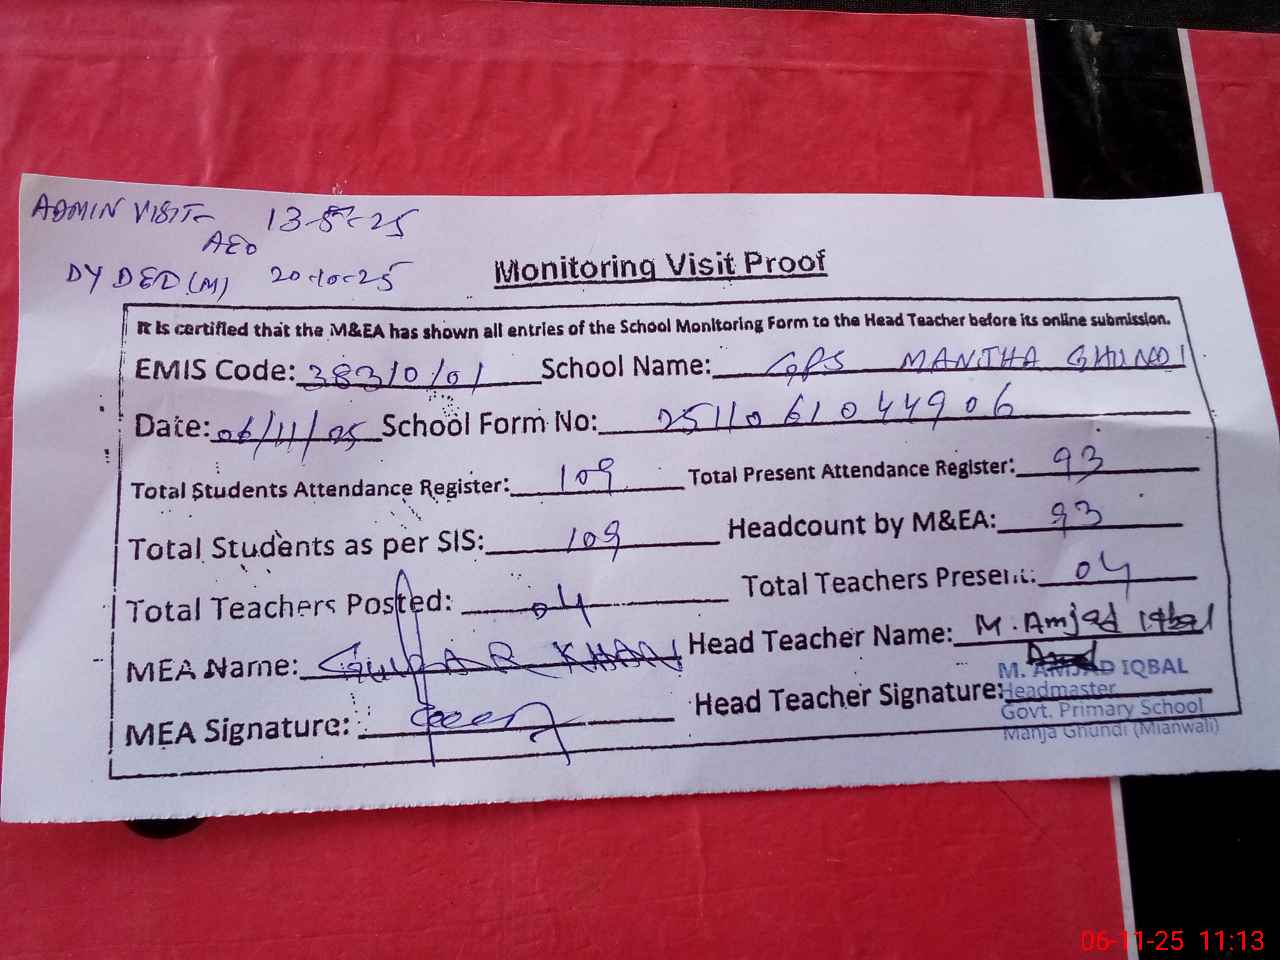 ADMIN VISIT- 13-8-25
AEO
DY DEO (M) 20-10-25
Monitoring Visit Proof
It is certified that the M&EA has shown all entries of the School Monitoring Form to the Head Teacher before its online submission.
EMIS Code: 38310101 School Name: GPS MANJHA GHUNDI
Date: 06/11/25 School Form No: 2511061044906
Total Students Attendance Register: 109 Total Present Attendance Register: 93
Total Students as per SIS: 109 Headcount by M&EA: 93
Total Teachers Posted: 04 Total Teachers Present: 04
MEA Name: KHAN Head Teacher Name: M. Amjad Iqbal
MEA Signature: Head Teacher Signature:
M. AMJAD IQBAL
Headmaster
Govt. Primary School
Manja Ghundi (Mianwali)
06-11-25 11:13